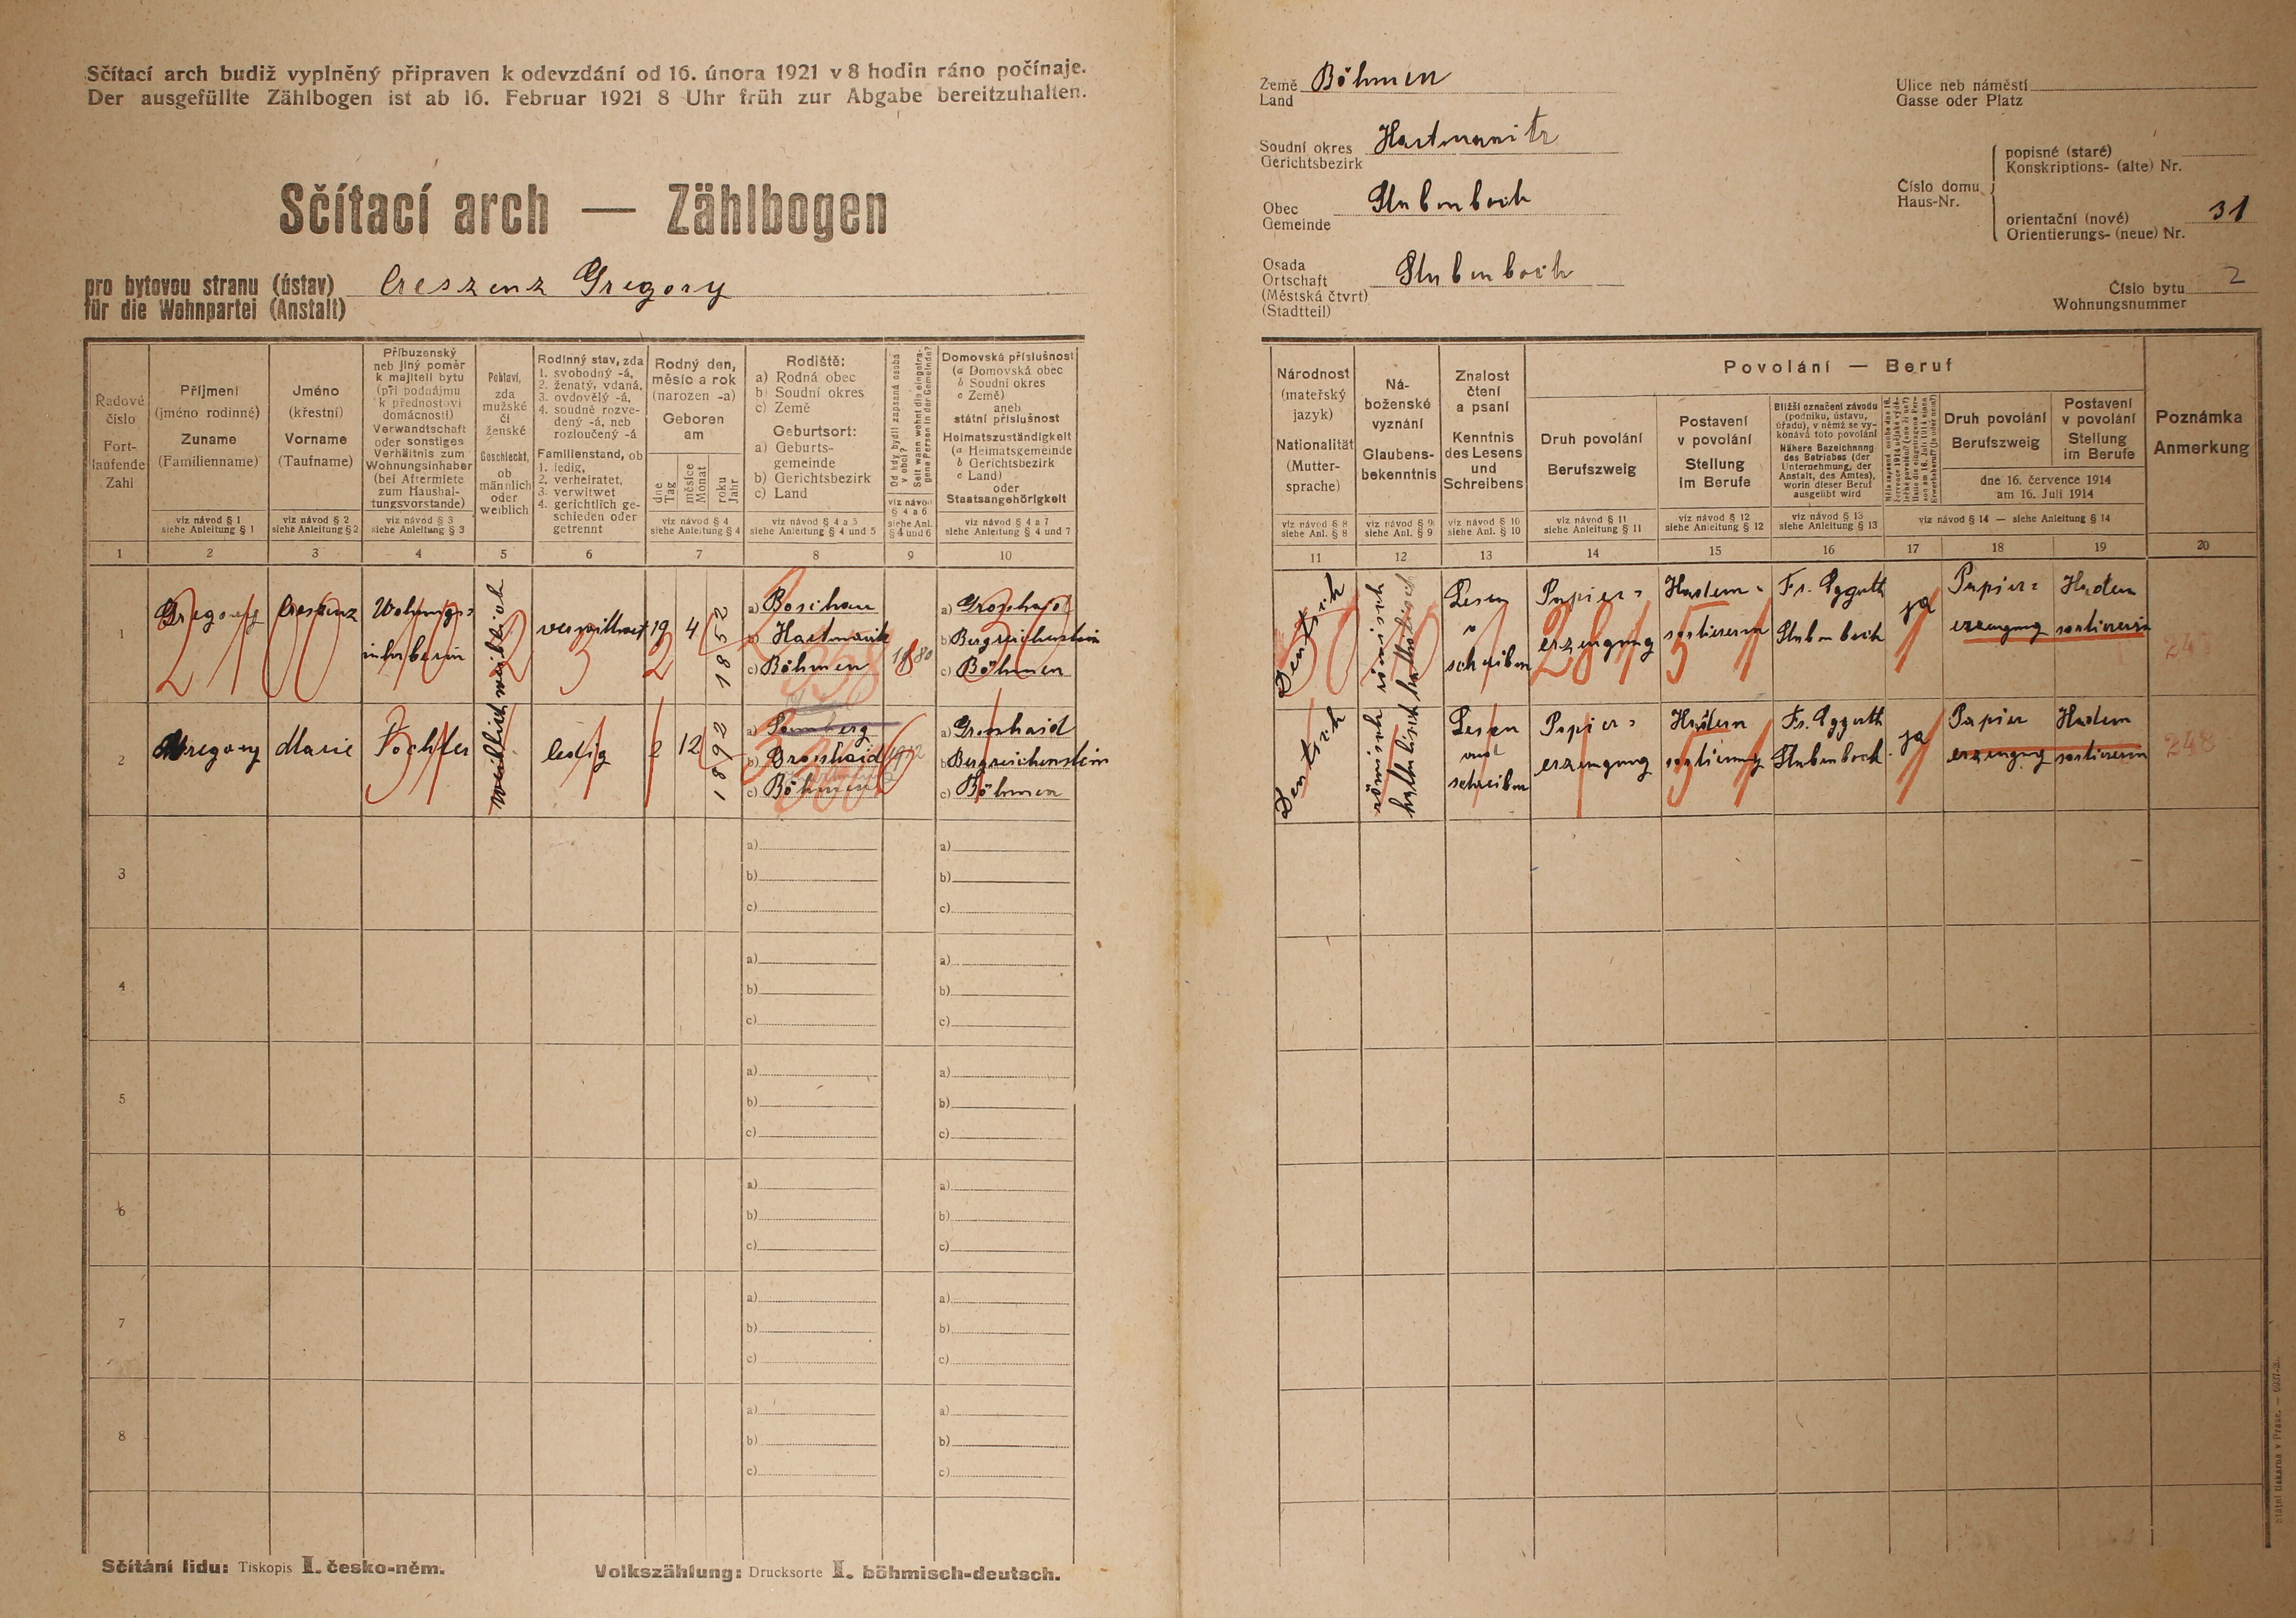 Sčítací arch budiž vyplněný připraven k odevzdání od 16. února 1921 v 8 hodin ráno počínaje.
Der ausgefüllte Zählbogen ist ab 16. Februar 1921 8 Uhr früh zur Abgabe bereitzuhalten.
Sčítací arch — Zählbogen
pro bytovou stranu (ústav)
für die Wohnpartei (Anstalt)
Creszenz Gregory
Země
Land
Böhmen
Soudní okres
Gerichtsbezirk
Hartmanitz
Obec
Gemeinde
Stubenbach
Osada
Ortschaft
(Městská čtvrt)
(Stadtteil)
Stubenbach
Ulice neb náměstí
Gasse oder Platz
Číslo domu
Haus-Nr.
popisné (staré)
Konskriptions- (alte) Nr.
orientační (nové)
Orientierungs- (neue) Nr.
31
Číslo bytu
Wohnungsnummer
2
Řadové
číslo
Fort-
laufende
Zahl
Příjmení
(jméno rodinné)
Zuname
(Familienname)
viz návod § 1
siehe Anleitung § 1
Jméno
(křestní)
Vorname
(Taufname)
viz návod § 2
siehe Anleitung § 2
Příbuzenský
neb jiný poměr
k majiteli bytu
(při podnájmu
k přednostovi
domácnosti)
Verwandtschaft
oder sonstiges
Verhältnis zum
Wohnungsinhaber
(bei Aftermiete
zum Haushal-
tungsvorstande)
viz návod § 3
siehe Anleitung § 3
Pohlaví,
zda
mužské
či
ženské
Geschlecht,
ob
männlich
oder
weiblich
Rodinný stav, zda
1. svobodný -á,
2. ženatý, vdaná,
3. ovdovělý -á,
4. soudně rozve-
dený -á, neb
rozloučený -á
Familienstand, ob
1. ledig,
2. verheiratet,
3. verwitwet
4. gerichtlich ge-
schieden oder
getrennt
Rodný den,
měsíc a rok
(narozen -a)
Geboren
am
dne
Tag
měsíce
Monat
roku
Jahr
viz návod § 4
siehe Anleitung § 4
Rodiště:
a) Rodná obec
b) Soudní okres
c) Země
Geburtsort:
a) Geburts-
gemeinde
b) Gerichtsbezirk
c) Land
viz návod § 4 a 5
siehe Anleitung § 4 und 5
Od kdy bydlí zapsaná osoba
v obci?
Seit wann wohnt die eingetra-
gene Person in der Gemeinde?
viz návod
§ 4 a 6
siehe Anl.
§ 4 und 6
Domovská příslušnost
(a Domovská obec
b Soudní okres
c Země)
aneb
státní příslušnost
Heimatszuständigkeit
(a Heimatsgemeinde
b Gerichtsbezirk
c Land)
oder
Staatsangehörigkeit
viz návod § 4 a 7
siehe Anleitung § 4 und 7
Národnost
(mateřský
jazyk)
Nationalität
(Mutter-
sprache)
viz návod § 8
siehe Anl. § 8
Ná-
boženské
vyznání
Glaubens-
bekenntnis
viz návod § 9
siehe Anl. § 9
Znalost
čtení
a psaní
Kenntnis
des Lesens
und
Schreibens
viz návod § 10
siehe Anl. § 10
Povolání — Beruf
Druh povolání
Berufszweig
viz návod § 11
siehe Anleitung § 11
Postavení
v povolání
Stellung
im Berufe
viz návod § 12
siehe Anleitung § 12
Bližší označení závodu
(podniku, ústavu,
úřadu), v němž se vy-
konává toto povolání
Nähere Bezeichnung
des Betriebes (der
Unternehmung, der
Anstalt, des Amtes),
worin dieser Beruf
ausgeübt wird
viz návod § 13
siehe Anleitung § 13
Druh povolání
Berufszweig
Postavení
v povolání
Stellung
im Berufe
dne 16. července 1914
am 16. Juli 1914
viz návod § 14 — siehe Anleitung § 14
Poznámka
Anmerkung
1 2 3 4 5 6 7 8 9 10 11 12 13 14 15 16 17 18 19 20
1
Gregory
Creszenz
Wohnungs-
inhaberin
weiblich
verwittwet
19
4
1852
a)
b)
c) Böhmen
1880
a) Grosshaid
b) Bergreichenstein
c) Böhmen
Deutsch
römisch katholisch
Lesen
u
schreiben
Papier-
erzeugung
Hadern-
sortiererin
Fr. Eggerth
Stubenbach
ja
Papier-
erzeugung
Hadern
sortiererin
2
Gregory
Marie
Tochter
weiblich
ledig
2
12
1892
a)
b) Grosshaid
c) Böhmen
a) Grosshaid
b) Bergreichenstein
c) Böhmen
Deutsch
römisch
katholisch
Lesen
und
schreiben
Papier-
erzeugung
Hadern
sortierung
Fr. Eggerth
Stubenbach
ja
Papier
erzeugung
Hadern
sortiererin
248
3
a)
b)
c)
a)
b)
c)
4
a)
b)
c)
a)
b)
c)
5
a)
b)
c)
a)
b)
c)
6
a)
b)
c)
a)
b)
c)
7
a)
b)
c)
a)
b)
c)
8
a)
b)
c)
a)
b)
c)
Sčítání lidu: Tiskopis I. česko-něm.
Volkszählung: Drucksorte I. böhmisch-deutsch.
Státní tiskárna v Praze.